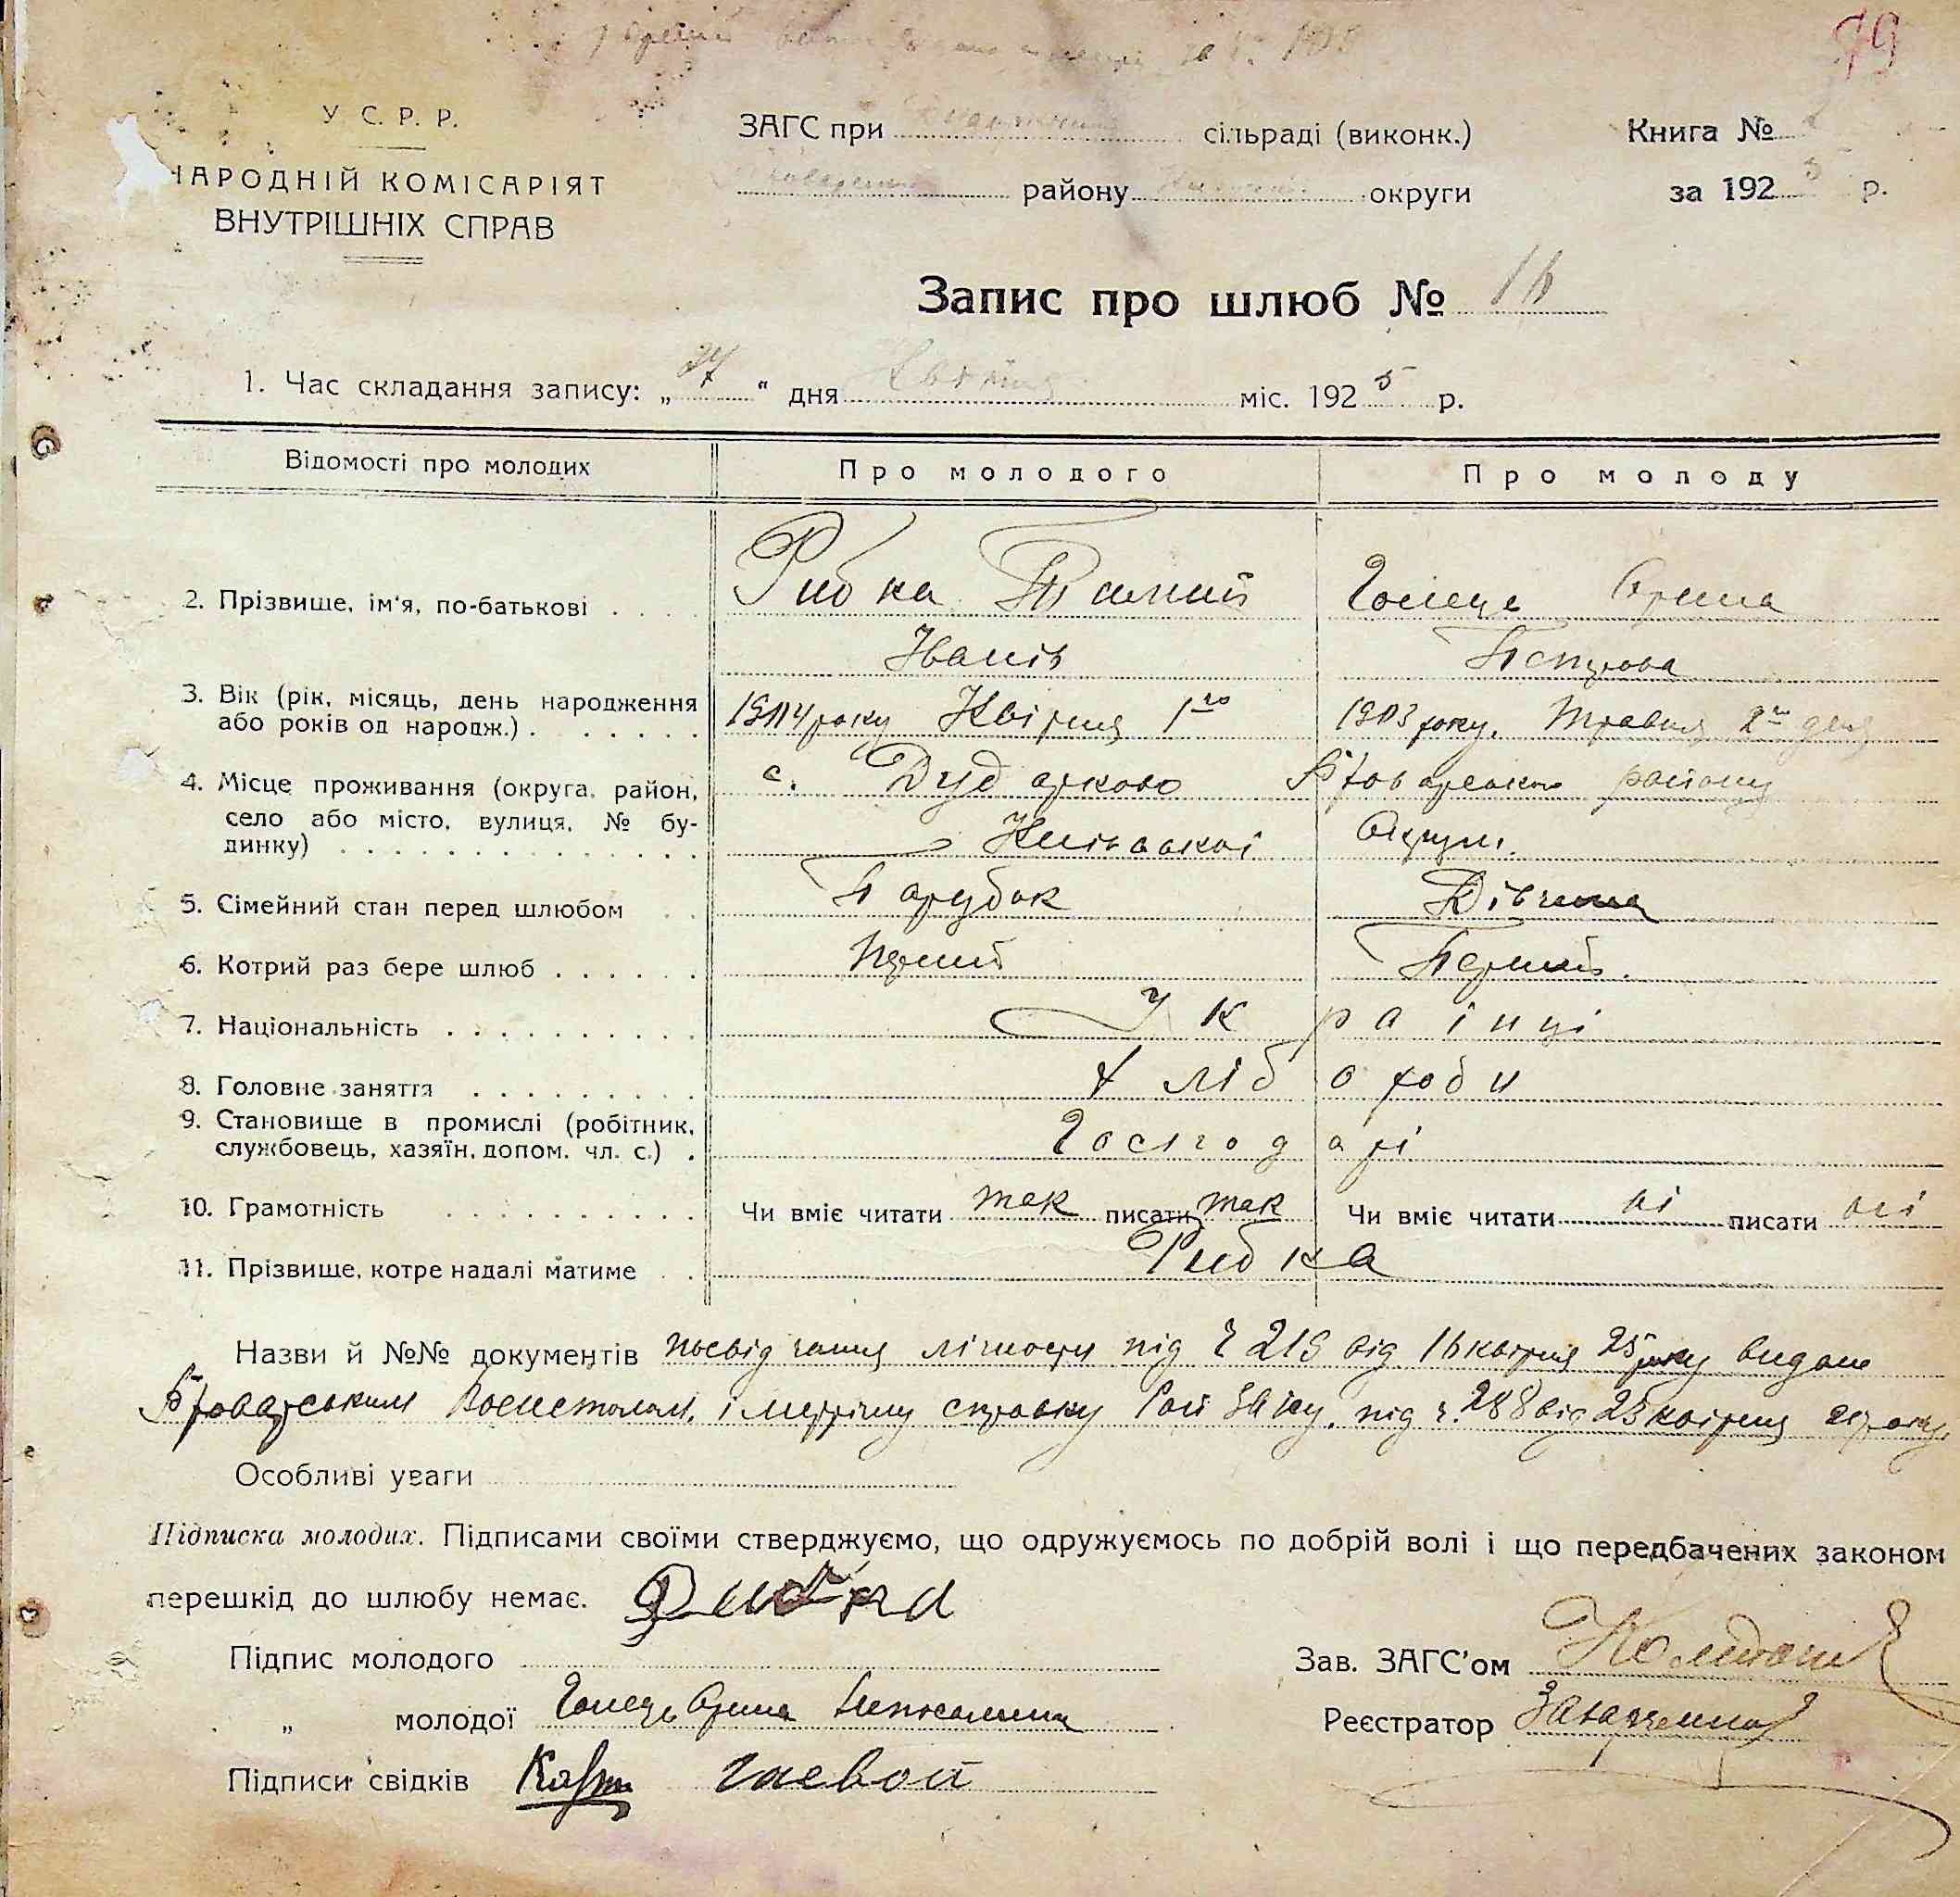 79
У С. Р. Р.
НАРОДНІЙ КОМІСАРІЯТ
ВНУТРІШНІХ СПРАВ
ЗАГС при сільраді (виконк.)
району округи
Книга №
за 1925 р.
Запис про шлюб № 16
1. Час складання запису: „27“ дня Квітня міс. 1925 р.
Відомості про молодих Про молодого Про молоду
2. Прізвище, ім'я, по-батькові Рибка Гонець Орина
Іванів Петрова
3. Вік (рік, місяць, день народження або років од народж.) 1904 року Квітня 1го 1903 року. Травня 2го дня
4. Місце проживання (округа, район, село або місто, вулиця, № будинку) с. Дударково Броварського району
Київської Округи.
5. Сімейний стан перед шлюбом Парубок Дівчина
6. Котрий раз бере шлюб Перший Перший.
7. Національність Українці
8. Головне заняття Хлібороби
9. Становище в промислі (робітник, службовець, хазяїн, допом. чл. с.) Господарі
10. Грамотність Чи вміє читати так писати так Чи вміє читати ні писати ні
11. Прізвище, котре надалі матиме Рибка
Назви й №№ документів посвідчання лічности під ч 219 від 16 квітня 25 року видане
Броварським Воєнстолом, і метричну справку під ч. 288 від 25 квітня
Особливі уваги
Підписка молодих. Підписами своїми стверджуємо, що одружуємось по добрій волі і що передбачених законом
перешкід до шлюбу немає. Рибка
Підпис молодого
„ молодої Гонець Орина
Підписи свідків
Зав. ЗАГС'ом
Реєстратор